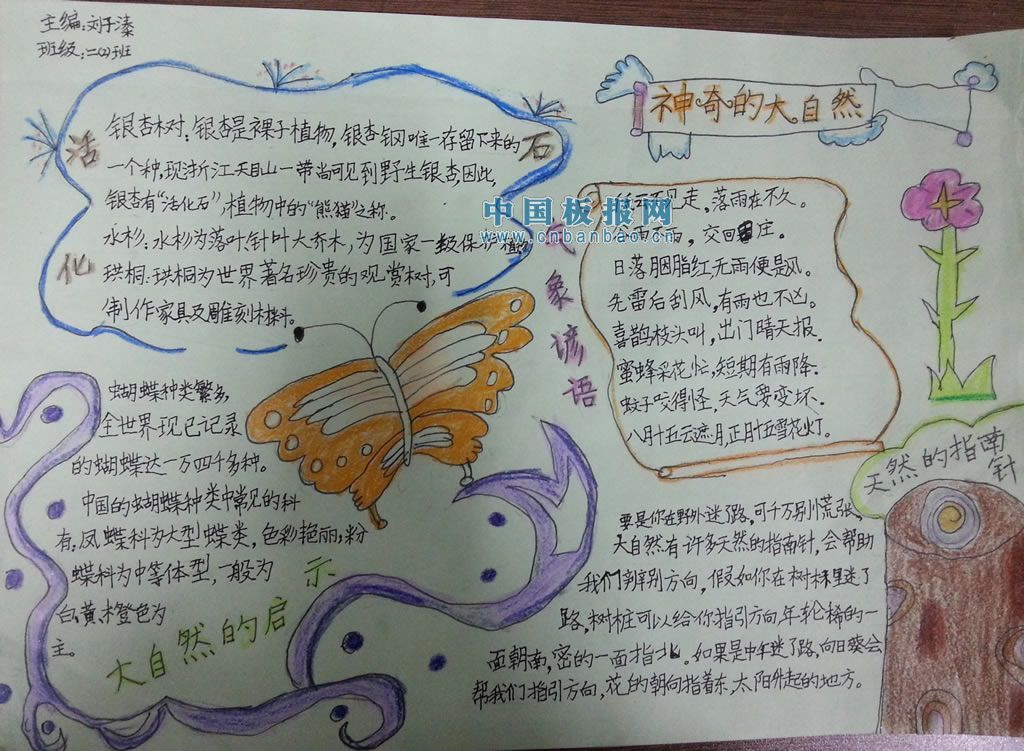 主编:刘子溱
班级:二(2)班
神奇的大自然
活化石
银杏树:银杏是裸子植物,银杏钢唯一存留下来的
一个种,现浙江天目山一带尚可见到野生银杏,因此,
银杏有“活化石”,植物中的“熊猫”之称。
水杉:水杉为落叶针叶大乔木,为国家一级保护植
珙桐:珙桐为世界著名珍贵的观赏树,可
制作家具及雕刻材料。
中国板报网
www.cnbanbao.cn
气象谚语
走,落雨在不久。
雨,交回庄。
日落胭脂红,无雨便是风。
先雷后刮风,有雨也不凶。
喜鹊枝头叫,出门晴天报.
蜜蜂采花忙,短期有雨降.
蚊子咬得怪,天气要变坏.
八月十五云遮月,正月十五雪花灯。
蝴蝶种类繁多,
全世界现已记录
的蝴蝶达一万四千多种。
中国的蝴蝶种类中常见的科
有,凤蝶科为大型蝶类,色彩艳丽;粉
蝶科为中等体型,一般为
白、黄、橙色为
主。
大自然的启示
天然的指南针
要是你在野外迷了路,可千万别慌张,
大自然有许多天然的指南针,会帮助
我们辨别方向,假如你在树林里迷了
路,树桩可以给你指引方向,年轮稀的一
面朝南,密的一面指北。如果是中午迷了路,向日葵会
帮我们指引方向,花的朝向指着东,太阳升起的地方。